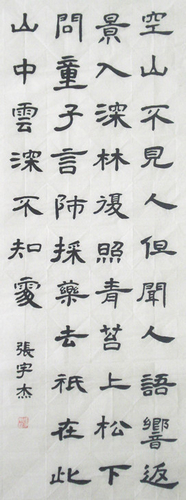 空山不見人但聞人語響返
景入深林復照青苔上松下
問童子言師採藥去祇在此
山中雲深不知處
張宇杰